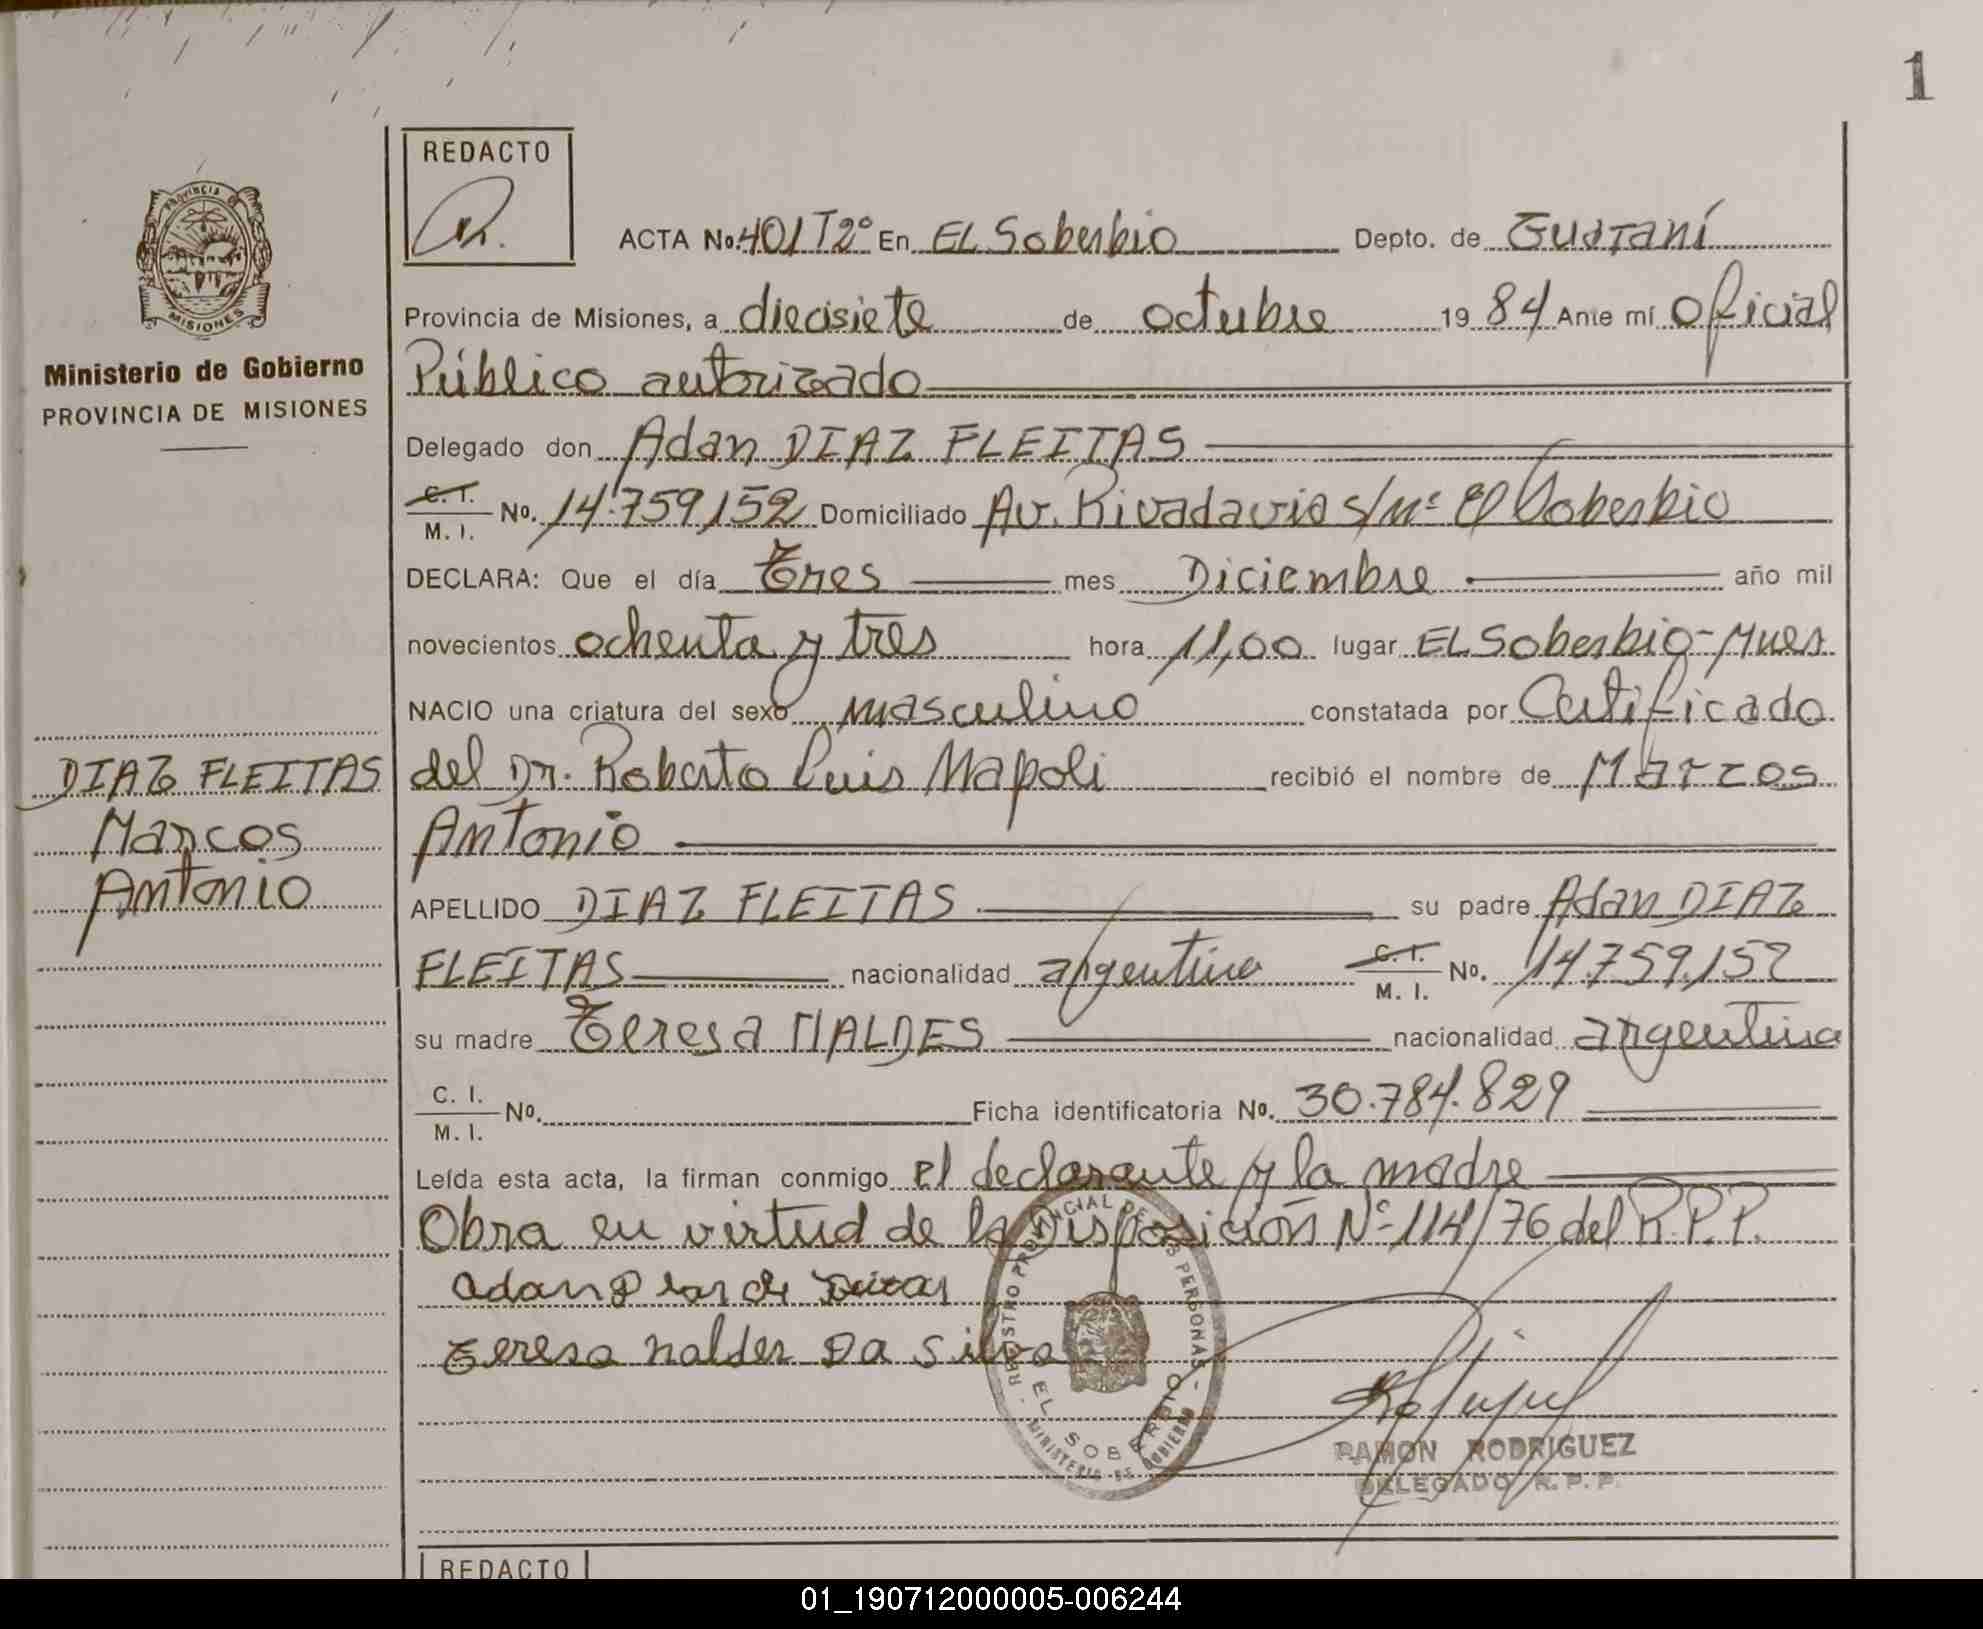 1
REDACTO
PROVINCIA DE
MISIONES
Ministerio de Gobierno
PROVINCIA DE MISIONES
ACTA No. 401 T2º En EL Soberbio Depto. de Guaraní
Provincia de Misiones, a diecisiete de octubre 1984 Ante mí Oficial
Público autorizado
Delegado don Adan DIAZ FLEITAS
C. I.
M. I. No. 14.759,152 Domiciliado Av. Rivadavia s/nº El Soberbio
DECLARA: Que el día Tres mes Diciembre año mil
novecientos ochenta y tres hora 11,00 lugar EL Soberbio-Mnes
NACIO una criatura del sexo masculino constatada por Certificado
del Dr. Roberto Luis Napoli recibió el nombre de Marcos
Antonio
DIAZ FLEITAS
Marcos
Antonio
APELLIDO DIAZ FLEITAS su padre Adan DIAZ
FLEITAS nacionalidad argentina C. I. M. I. No. 14.759.152
su madre Teresa NALDES nacionalidad argentina
C. I.
M. I. No. Ficha identificatoria No. 30.784.829
Leída esta acta, la firman conmigo el declarante y la madre
Obra en virtud de la Disposición Nº 114/76 del R.P.P.
Adan Diaz de
Teresa naldes Da Silva
REGISTRO PROVINCIAL DE LAS PERSONAS - MINISTERIO DE GOBIERNO
EL SOBERBIO
RAMON RODRIGUEZ
DELEGADO R. P. P.
REDACTO
01_190712000005-006244